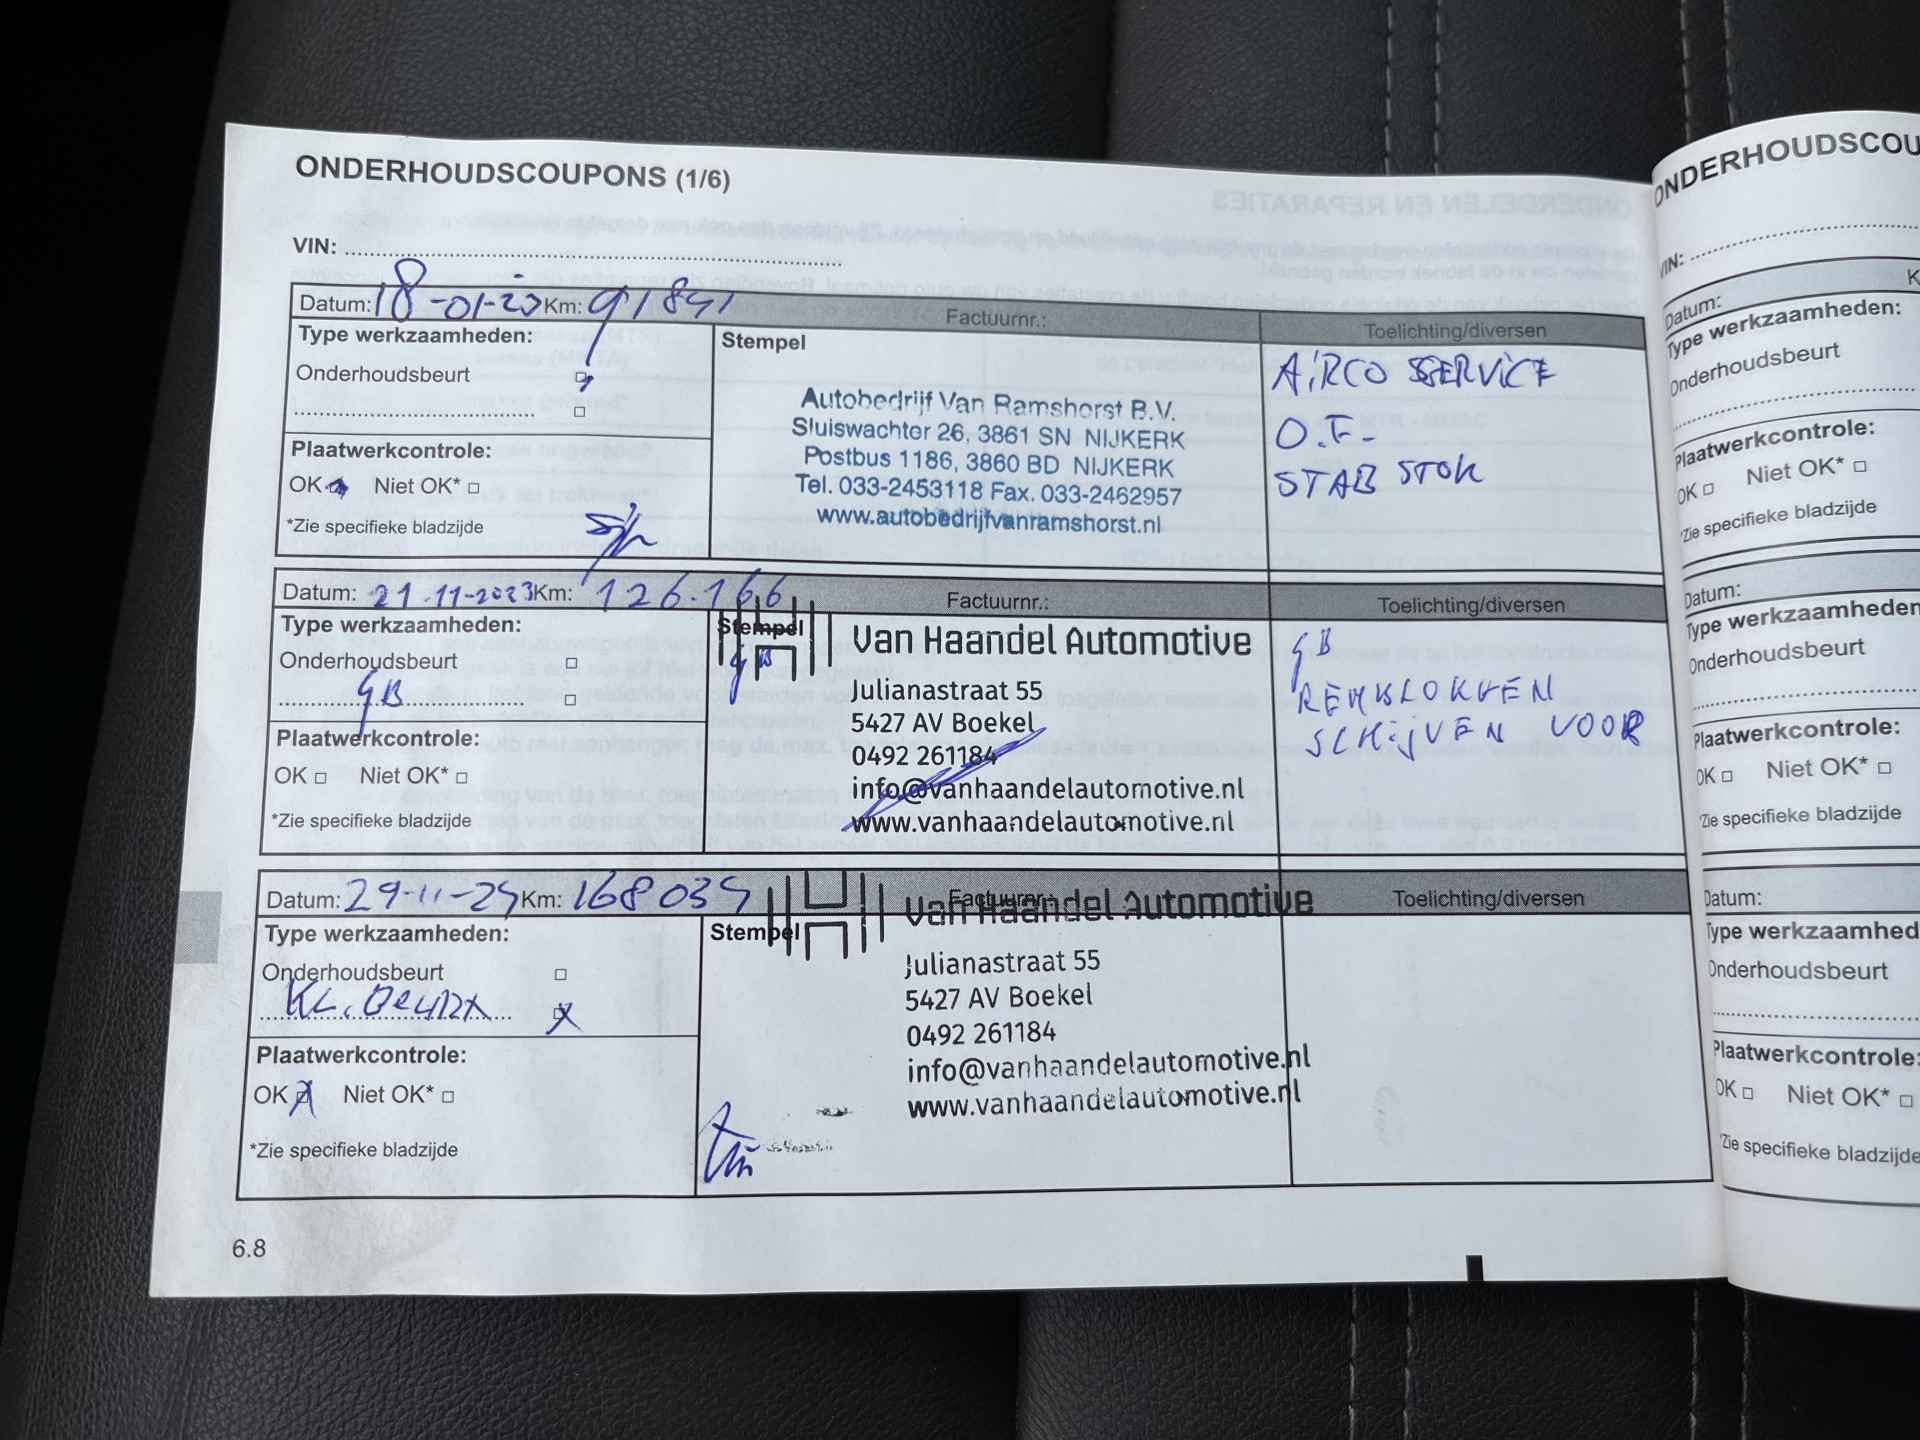 ONDERHOUDSCOUPONS (1/6)
VIN:
Datum: 18-01-23 Km: 91841 Factuurnr.: Toelichting/diversen
Type werkzaamheden:
Onderhoudsbeurt
Plaatwerkcontrole:
OK Niet OK*
*Zie specifieke bladzijde
Stempel
Autobedrijf Van Ramshorst B.V.
Sluiswachter 26, 3861 SN NIJKERK
Postbus 1186, 3860 BD NIJKERK
Tel. 033-2453118 Fax. 033-2462957
www.autobedrijfvanramshorst.nl
AIRCO SERVICE
O.F-
STAB STOK
Datum: 21-11-2023 Km: 126.166 Factuurnr.: Toelichting/diversen
Type werkzaamheden:
Onderhoudsbeurt
GB
Plaatwerkcontrole:
OK Niet OK*
*Zie specifieke bladzijde
Stempel
GB
Van Haandel Automotive
Julianastraat 55
5427 AV Boekel
0492 261184
info@vanhaandelautomotive.nl
www.vanhaandelautomotive.nl
GB
REMBLOKKEN
SCHIJVEN VOOR
Datum: 29-11-24 Km: 168034 Factuurnr.: Toelichting/diversen
Type werkzaamheden:
Onderhoudsbeurt
KL. Beurt
Plaatwerkcontrole:
OK Niet OK*
*Zie specifieke bladzijde
Stempel
Van Haandel Automotive
Julianastraat 55
5427 AV Boekel
0492 261184
info@vanhaandelautomotive.nl
www.vanhaandelautomotive.nl
6.8
ONDERHOUDSCOU
VIN:
Datum: K
Type werkzaamheden:
Onderhoudsbeurt
Plaatwerkcontrole:
OK Niet OK*
*Zie specifieke bladzijde
Datum:
Type werkzaamheden
Onderhoudsbeurt
Plaatwerkcontrole:
OK Niet OK*
*Zie specifieke bladzijde
Datum:
Type werkzaamhed
Onderhoudsbeurt
Plaatwerkcontrole:
OK Niet OK*
*Zie specifieke bladzijde